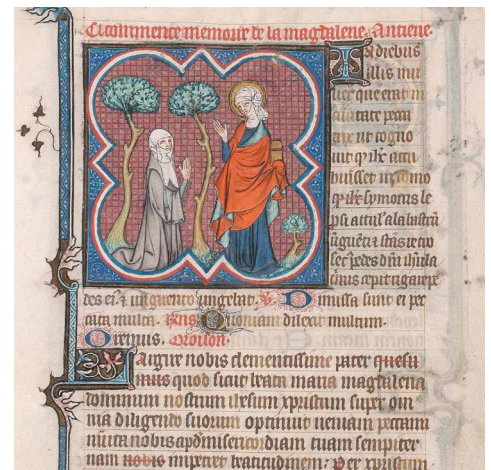 Ci commence memoire de la magdalene. Antiene.
In diebus
illis mu
lier que erat in
ciuitate pecca
trix ut cogno
uit
symonis le
psi attulit alabastru
secus pedes
des ei' & unguento ungebat. Dimissa sunt ei pec
cata multa. Quoniam dilexit multum.
Oremus. Oroison.
Largire nobis clementissime pater quesu
mus quod sicut beata maria magdalena
dominum nostrum ihesum xpristum super om
nia diligendo suorum optinuit ueniam peccami
num ita nobis apud misericordiam tuam sempiter
nam nobis impetret beatitudinem. Per xpristum